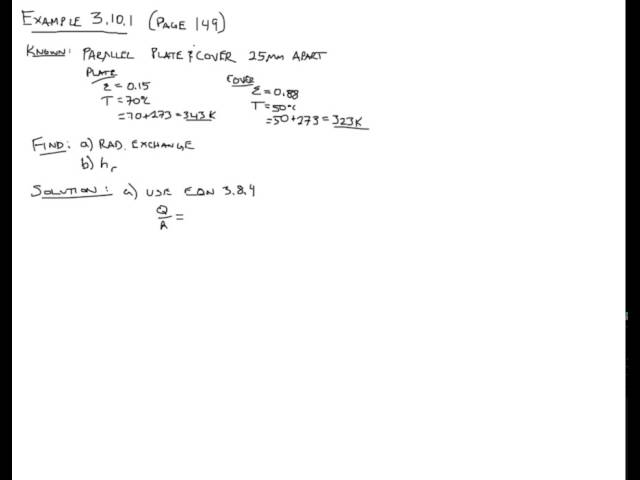 EXAMPLE 3.10.1 (PAGE 149)
KNOWN: PARALLEL PLATE & COVER 25mm APART
PLATE
ε = 0.15
T = 70°C
= 70+273 = 343K
COVER
ε = 0.88
T = 50°C
= 50+273 = 323K
FIND: a) RAD. EXCHANGE
b) hr
SOLUTION: a) USE EQN 3.8.4
Q/A =